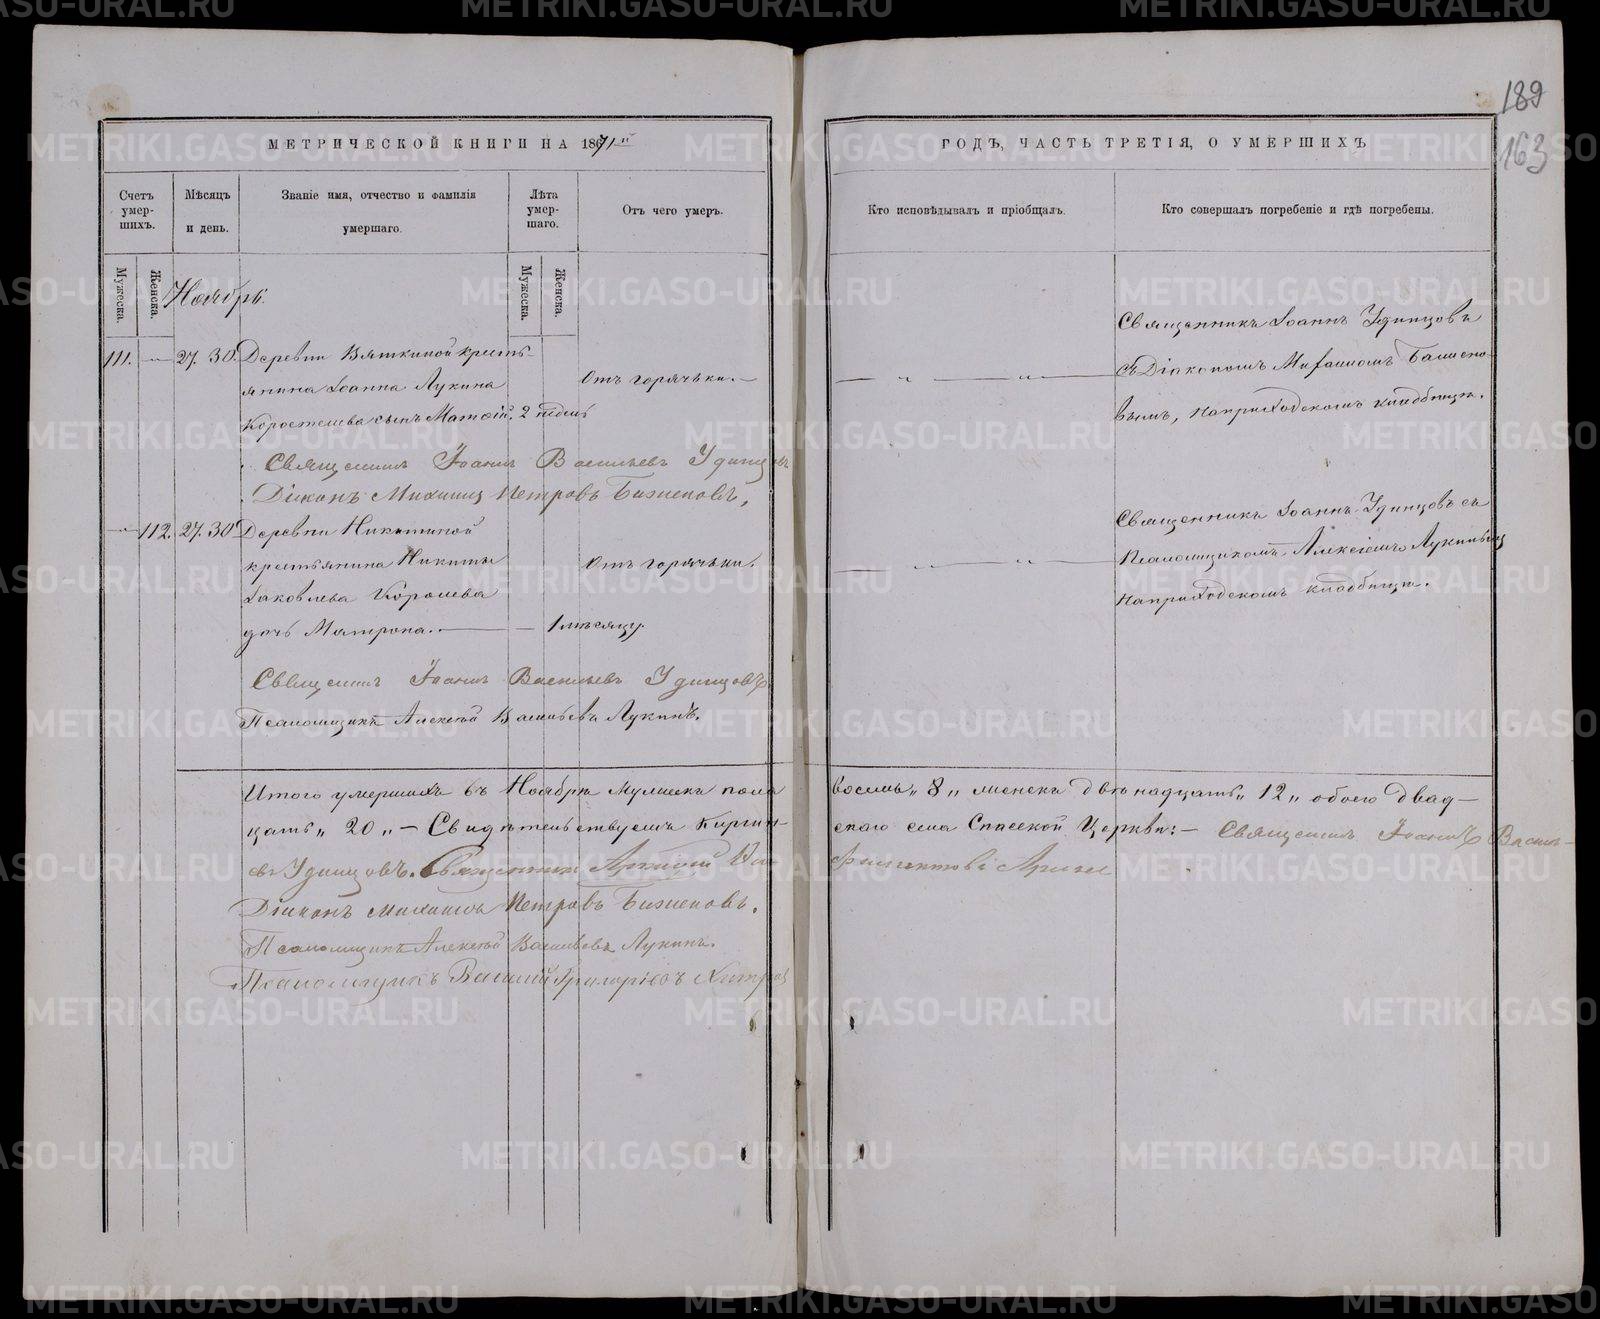 189
163
МЕТРИЧЕСКОЙ КНИГИ НА 1871й
ГОДЪ, ЧАСТЬ ТРЕТІЯ, О УМЕРШИХЪ
Счетъ умер-шихъ.
Мѣсяцъ и день.
Званіе имя, отчество и фамилія умершаго.
Лѣта умер-шаго.
Отъ чего умеръ.
Кто исповѣдывалъ и пріобщалъ.
Кто совершалъ погребеніе и гдѣ погребены.
Мужеска.
Женска.
Мужеска.
Женска.
Ноябрь.
111. — 27. 30. Деревни Вяткиной кресть-
янина Іоанна Лукина
Коростелева сынъ Матѳій. 2 недѣль
Отъ горячьки.
Священникъ Іоаннъ Удинцовъ
съ Діакономъ Михаиломъ Бажено-
вымъ, на приходскомъ кладбищѣ.
Священникъ Іоаннъ Васильевъ Удинцовъ
Діаконъ Михаилъ Петровъ Баженовъ,
— 112. 27. 30 Деревни Никитиной
крестьянина Никиты
Іаковлева Королева
дочь Матрона. — 1 мѣсяцу.
Отъ горячьки.
Священникъ Іоаннъ Удинцовъ съ
Псаломщикомъ Алексіемъ Лукинымъ
на приходскомъ кладбищѣ.
Священникъ Іоаннъ Васильевъ Удинцовъ
Псаломщикъ Алексѣй Васильевъ Лукинъ.
Итого умершихъ въ Ноябрѣ Мужеск пола восемь „ 8 „ женска двѣнадцать „ 12 „ обоего двад-
цать „ 20 „ — Свидѣтельствуемъ Киргин-скаго села Спасской Церкви: — Священникъ Іоаннъ Василь-
евъ Удинцовъ. Священникъ
Діаконъ Михаилъ Петровъ Баженовъ.
Псаломщикъ Алексѣй Васильевъ Лукинъ.
Псаломщикъ Василий Григорьевъ
METRIKI.GASO-URAL.RU